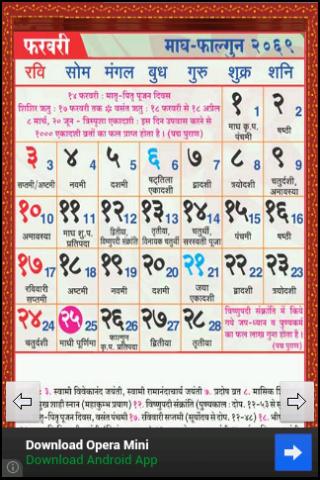 फरवरी माघ-फाल्गुन २०६९
रवि सोम मंगल बुध गुरु शुक्र शनि
१४ फरवरी : मातृ-पितृ पूजन दिवस
शिशिर ऋतु : १७ फरवरी तक वसंत ऋतु : १८ फरवरी से १८ अप्रैल
८ मार्च, २० जून - त्रिस्पृशा एकादशी : इस दिन उपवास करने से
१००० एकादशी व्रतों का फल प्राप्त होता है। (पद्म पुराण)
१ 1 २ 2
माघ कृ.प. पंचमी षष्ठी
३ 3 ४ 4 ५ 5 ६ 6 ७ 7 ८ 8 ९ 9
सप्तमी/अष्टमी नवमी दशमी षट्तिला एकादशी द्वादशी त्रयोदशी चतुर्दशी, अमावस्या
१० 10 ११ 11 १२ 12 १३ 13 १४ 14 १५ 15 १६ 16
अमावस्या माघ शु.प. प्रतिपदा द्वितीया, विष्णुपदी संक्रांति तृतीया, विनायक चतुर्थी चतुर्थी, सरस्वती पूजा पंचमी षष्ठी
१७ 17 १८ 18 १९ 19 २० 20 २१ 21 २२ 22 २३ 23
रविवारी सप्तमी अष्टमी नवमी दशमी जया एकादशी द्वादशी त्रयोदशी
२४ 24 २५ 25 २६ 26 २७ 27 २८ 28
चतुर्दशी माघी पूर्णिमा फाल्गुन कृ.प. प्रतिपदा द्वितीया तृतीया
विष्णुपदी संक्रांति में किये
गये जप-ध्यान व पुण्यकर्म
का फल लाख गुना होता है।
(पद्म पुराण)
३. स्वामी विवेकानंद जयंती, स्वामी रामानंदाचार्य जयंती ७. प्रदोष व्रत ८. मासिक
शाही स्नान (महाकुम्भ प्रयाग) १२. विष्णुपदी संक्रांति (पुण्यकाल : दोप. १२-५३ से
पितृ पूजन दिवस, वसंत पंचमी १७. रविवारी सप्तमी (सूर्योदय से दोप. १२-४८) १८.
Download Opera Mini
Download Android App